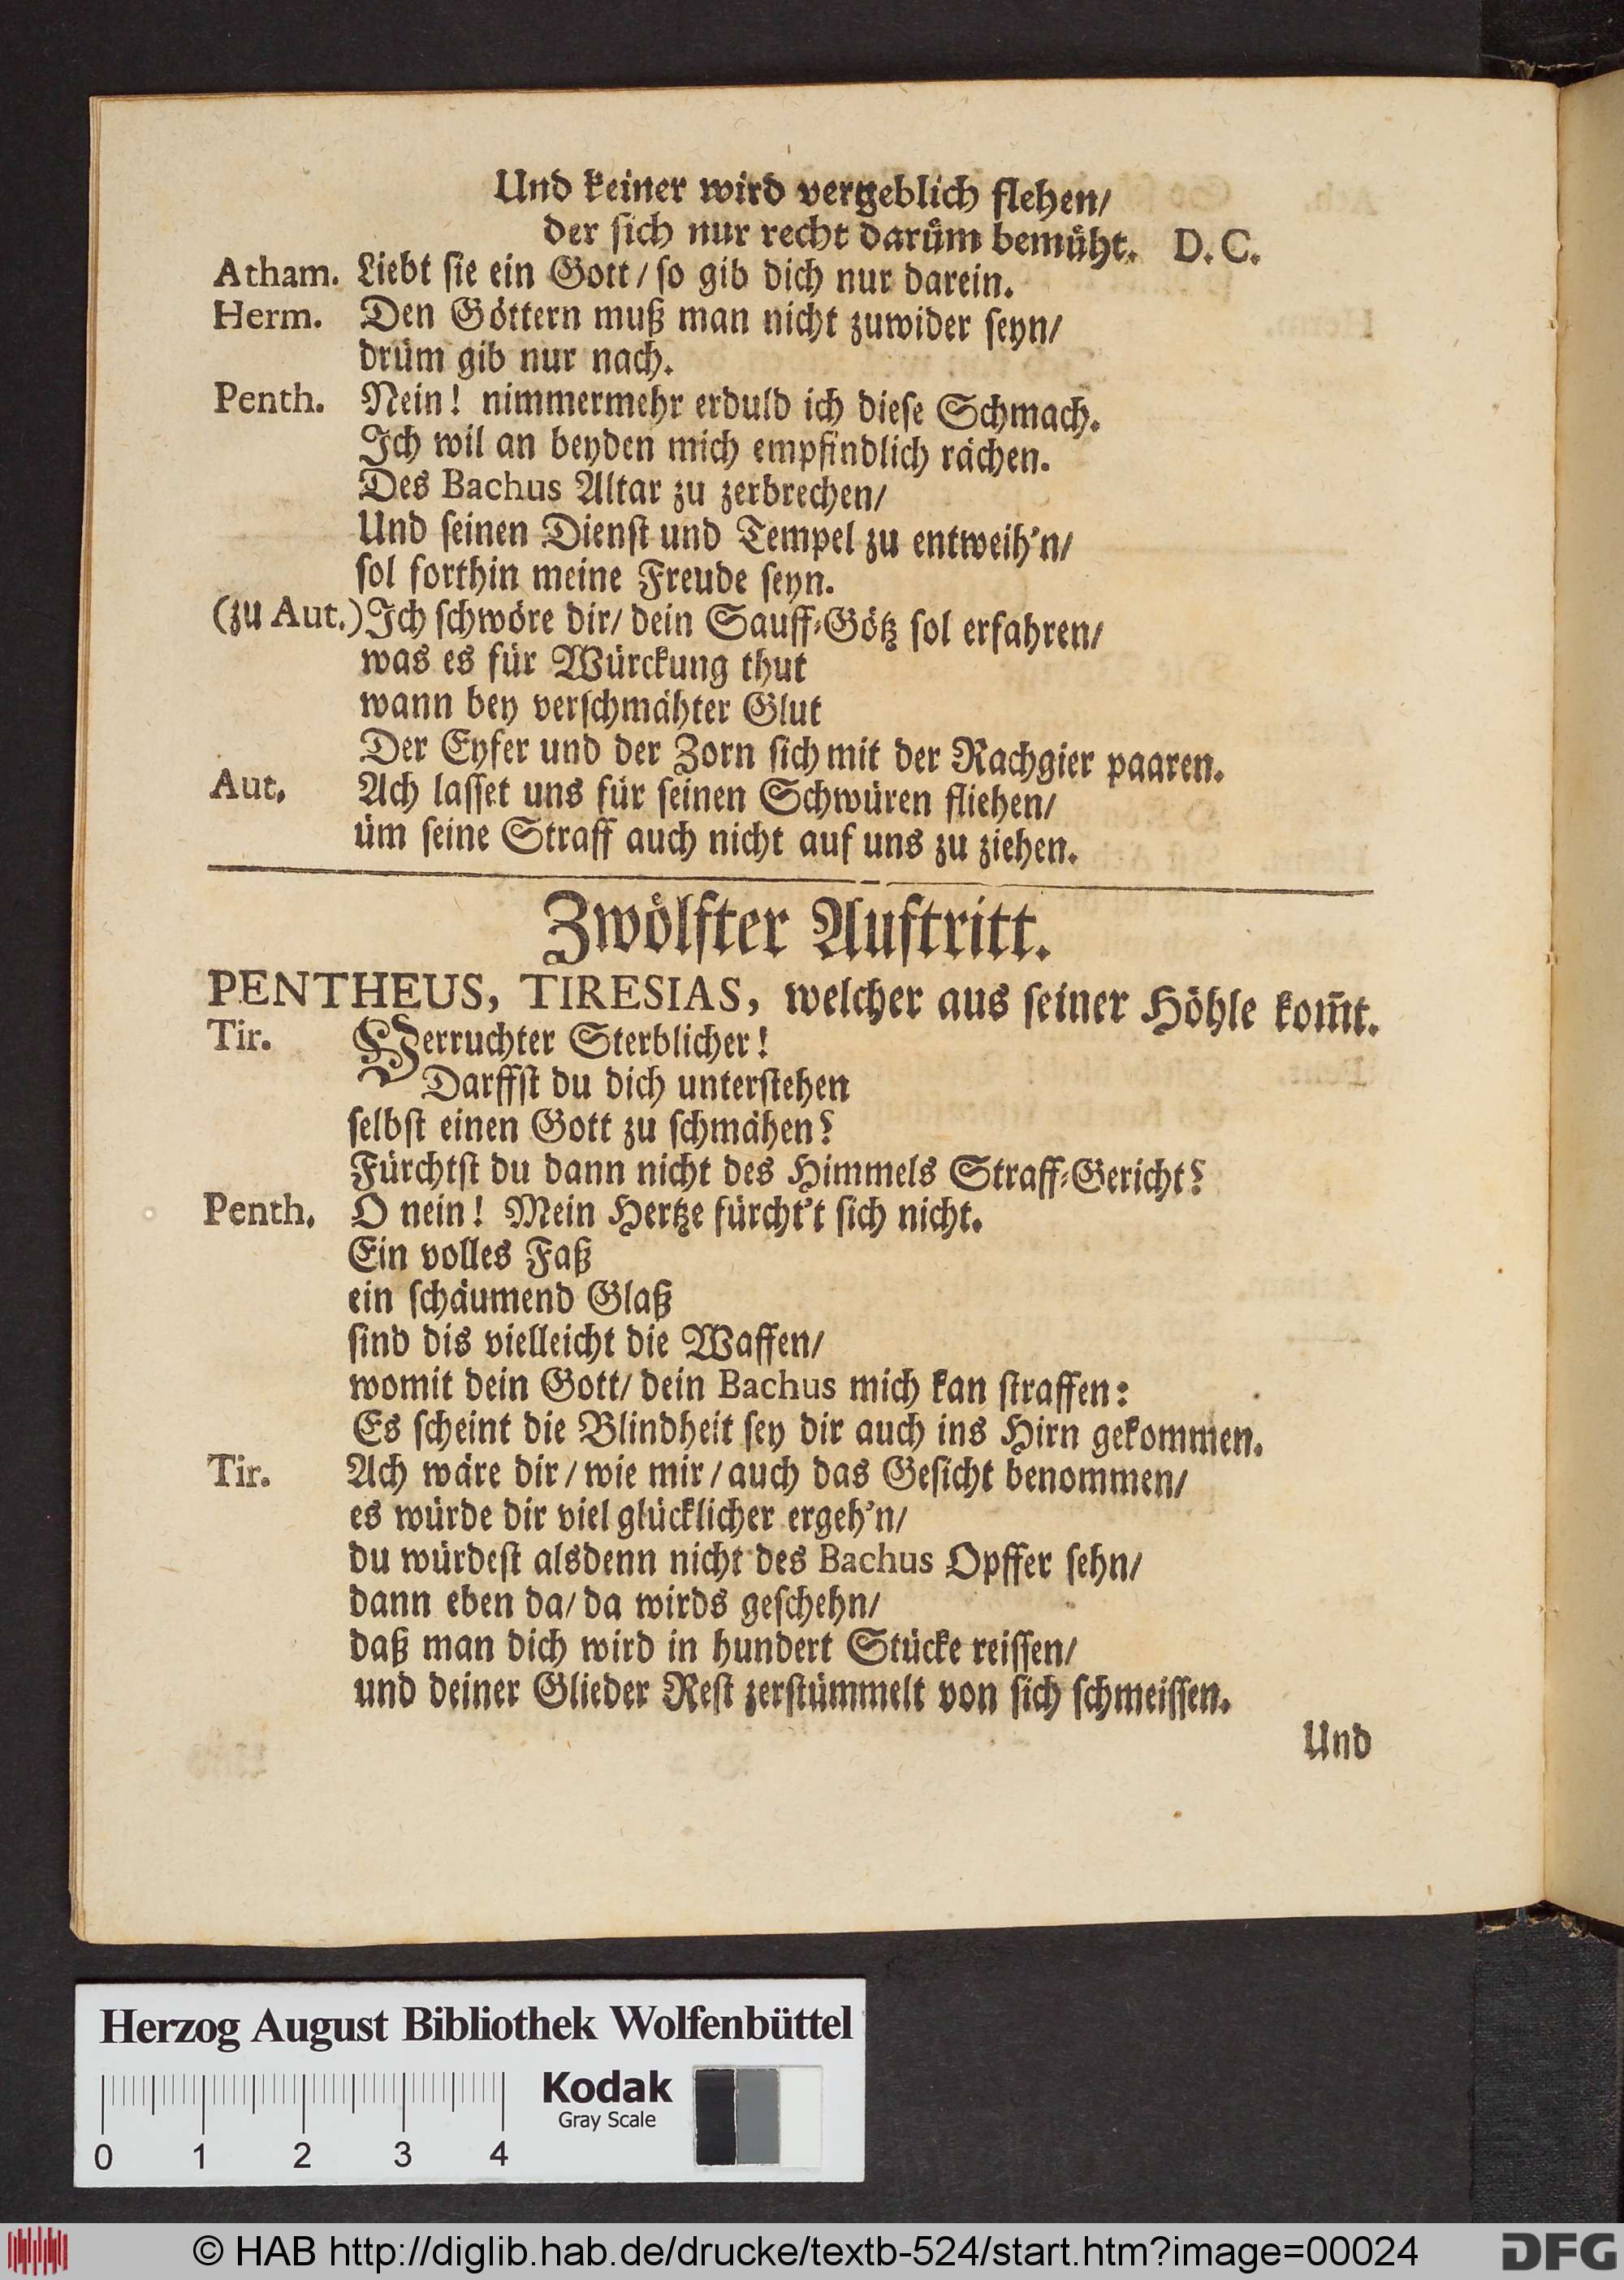 Und keiner wird vergeblich flehen/
der sich nur recht darům bemůht. D. C.
Atham. Liebt sie ein Gott/ so gib dich nur darein.
Herm. Den Göttern muß man nicht zuwider seyn/
drům gib nur nach.
Penth. Nein! nimmermehr erduld ich diese Schmach.
Ich wil an beyden mich empfindlich rächen.
Des Bachus Altar zu zerbrechen/
Und seinen Dienst und Tempel zu entweih'n/
sol forthin meine Freude seyn.
(zu Aut.) Ich schwöre dir/ dein Sauff-Götz sol erfahren/
was es für Würckung thut
wann bey verschmähter Glut
Der Eyfer und der Zorn sich mit der Rachgier paaren.
Aut. Ach lasset uns für seinen Schwüren fliehen/
üm seine Straff auch nicht auf uns zu ziehen.
Zwölfter Auftritt.
PENTHEUS, TIRESIAS, welcher aus seiner Höhle kom̃t.
Tir. Verruchter Sterblicher!
Darffst du dich unterstehen
selbst einen Gott zu schmähen?
Fürchtst du dann nicht des Himmels Straff-Gericht?
Penth. O nein! Mein Hertze fürcht't sich nicht.
Ein volles Faß
ein schäumend Glaß
sind dis vielleicht die Waffen/
womit dein Gott/ dein Bachus mich kan straffen:
Es scheint die Blindheit sey dir auch ins Hirn gekommen.
Tir. Ach wäre dir/ wie mir/ auch das Gesicht benommen/
es würde dir viel glücklicher ergeh'n/
du würdest alsdenn nicht des Bachus Opffer sehn/
dann eben da/ da wirds geschehn/
daß man dich wird in hundert Stücke reissen/
und deiner Glieder Rest zerstümmelt von sich schmeissen.
Und
Herzog August Bibliothek Wolfenbüttel
Kodak
Gray Scale
0 1 2 3 4
© HAB http://diglib.hab.de/drucke/textb-524/start.htm?image=00024
DFG